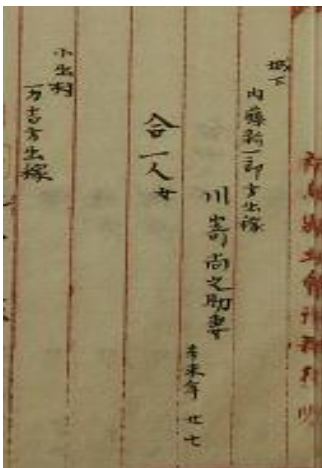 城下
内藤新一郎方出稼
川嵜尚之助妻
辛未年 廿七
合一人 女
小出村
万吉方出稼